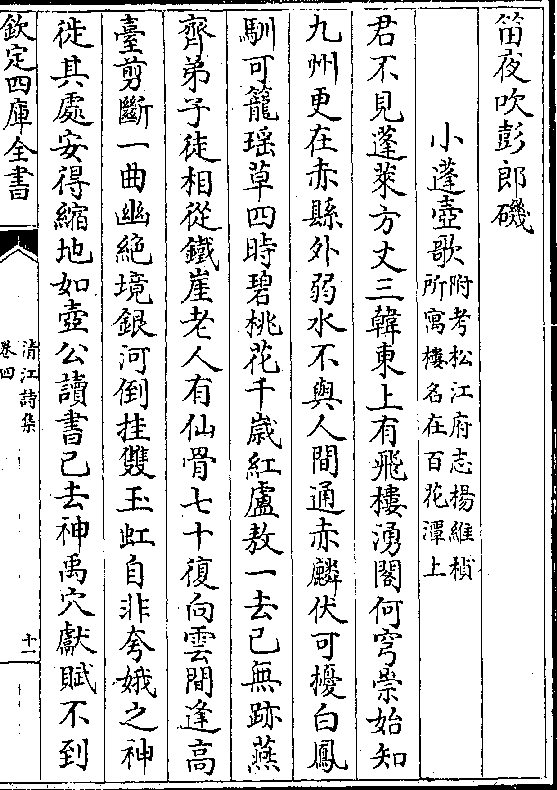 笛夜吹彭郎磯
小蓬壺歌附考松江府志楊維楨
所寓樓名在百花潭上
君不見蓬萊方丈三韓東上有飛樓湧閣何穹崇始知
九州更在赤縣外弱水不與人間通赤麟伏可擾白鳳
馴可籠瑶草四時碧桃花千歲紅盧敖一去已無跡燕
齊弟子徒相從鐵崖老人有仙骨七十復向雲間逢高
臺剪斷一曲幽絶境銀河倒挂雙玉虹自非夸娥之神
徙其處安得縮地如壺公讀書已去神禹穴獻賦不到
欽定四庫全書
清江詩集
卷四
十一